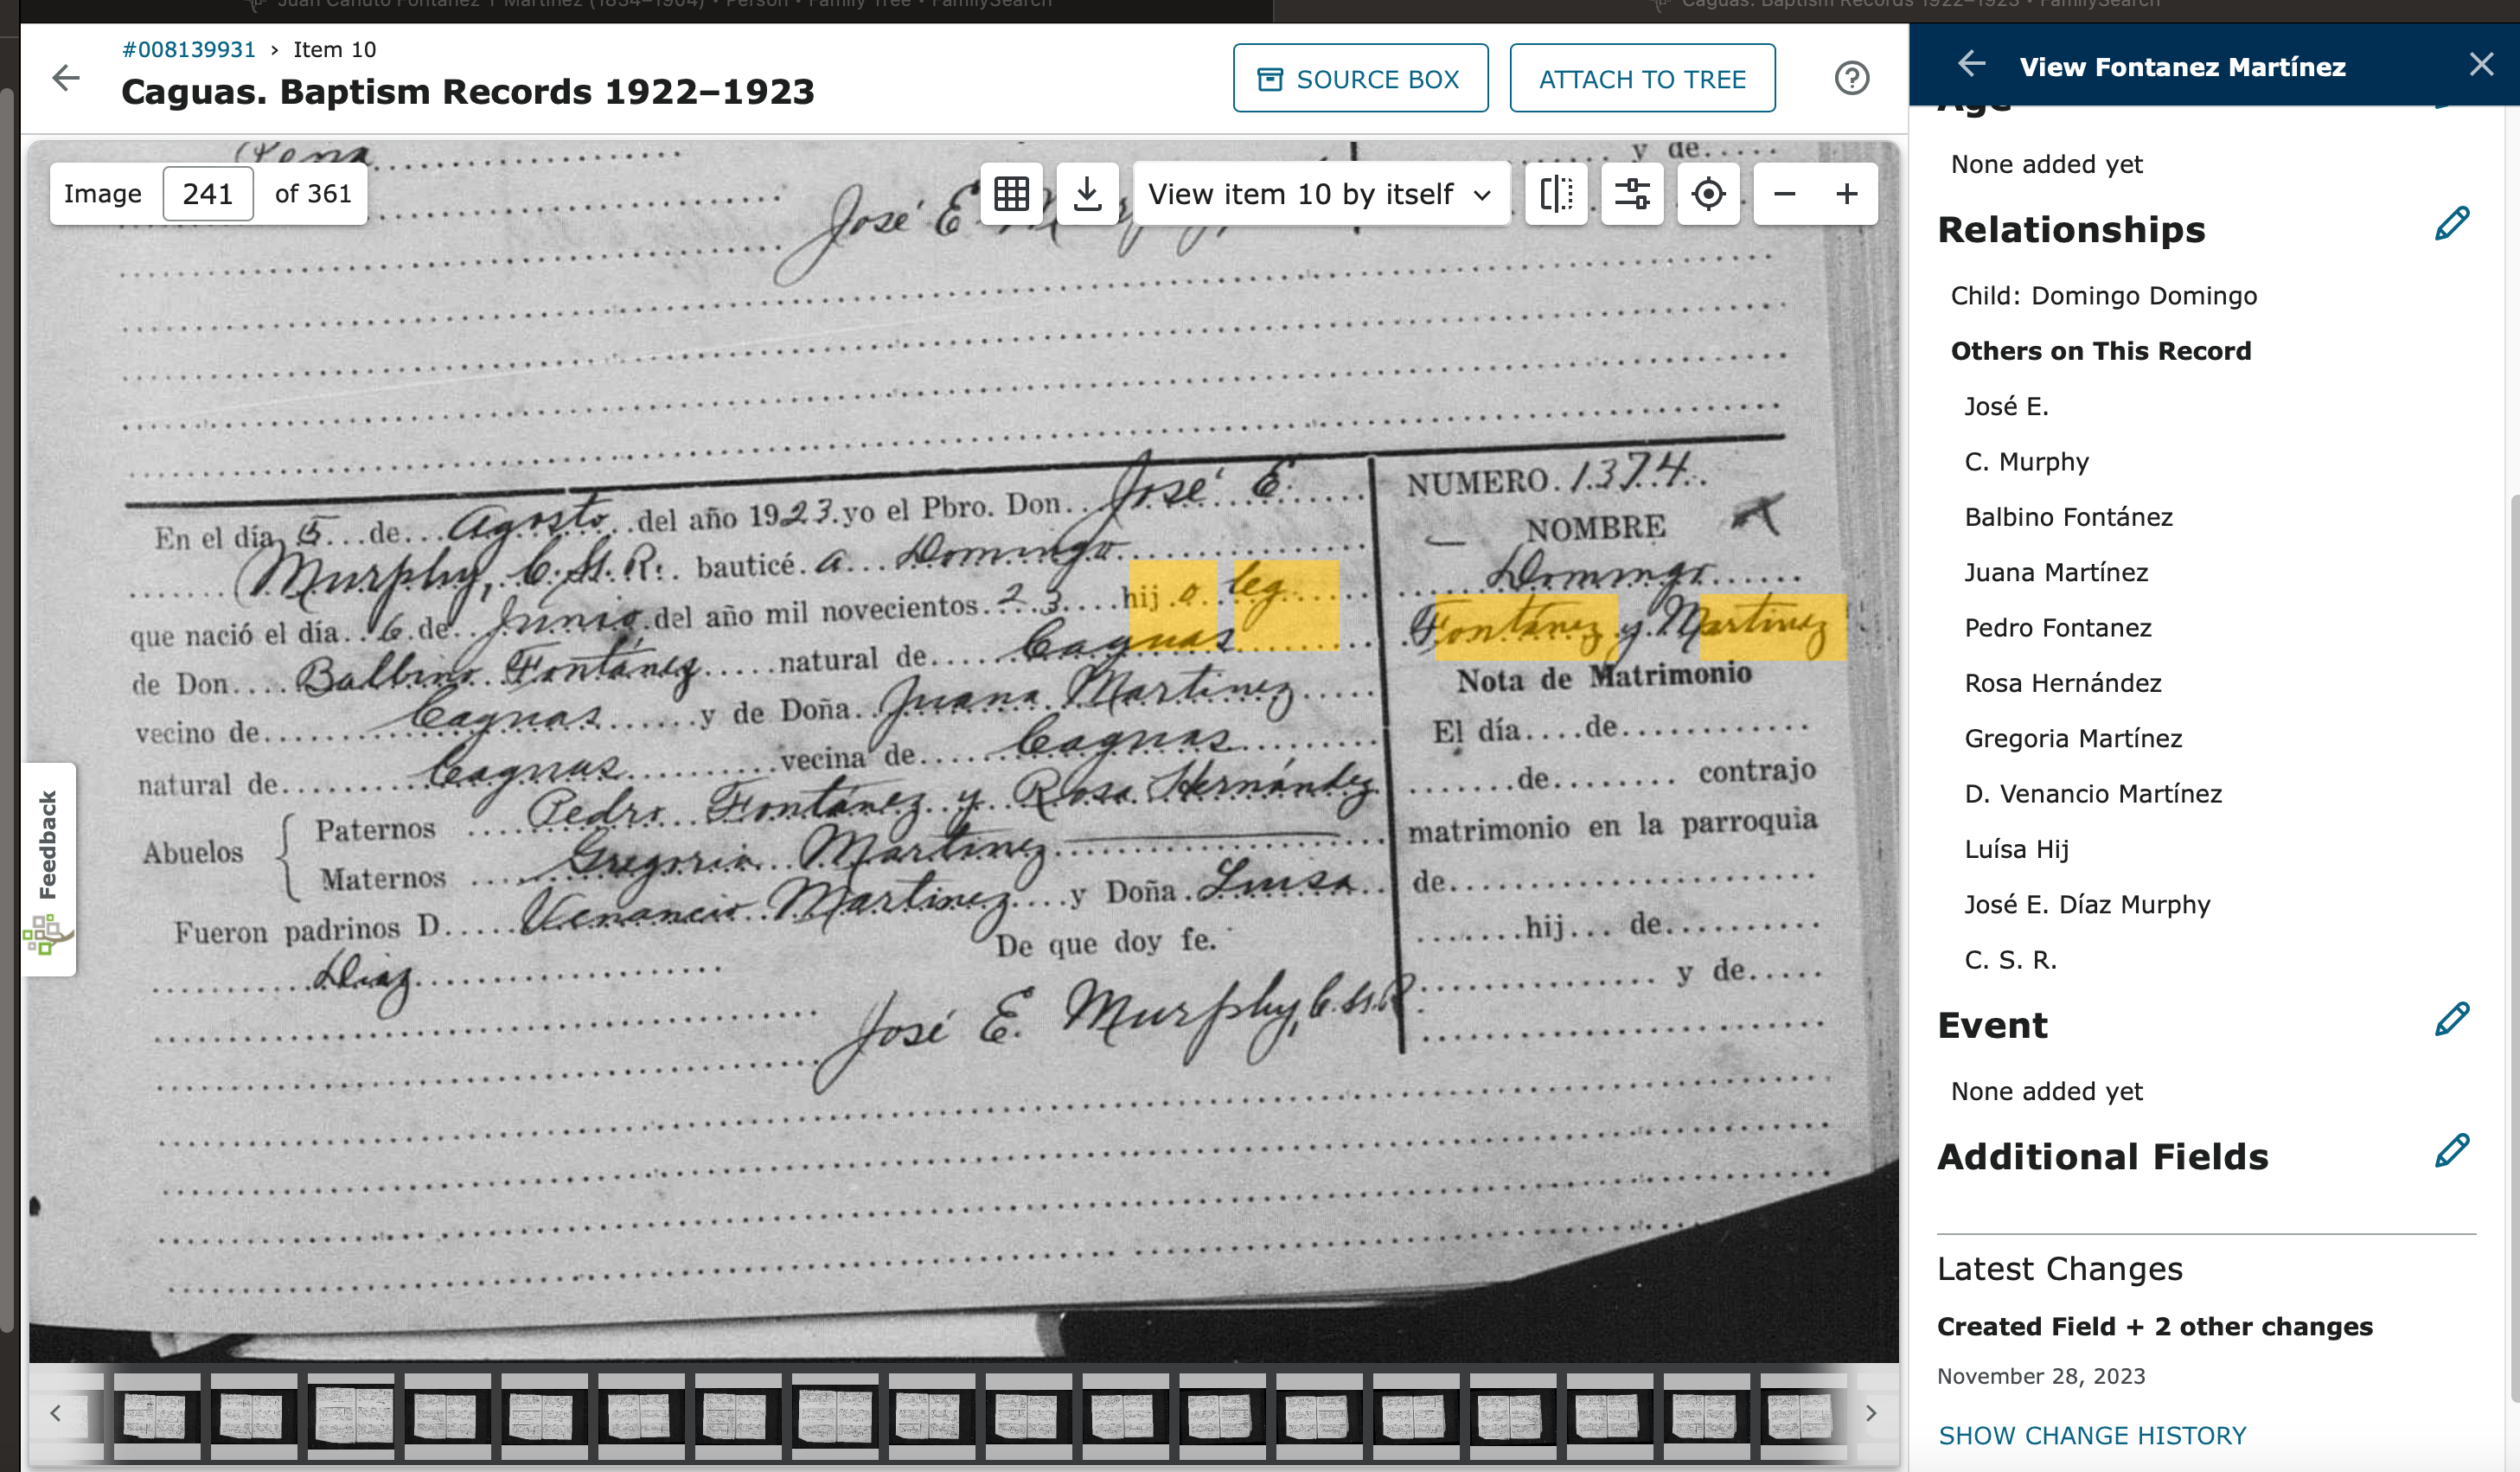 Juan Canuto Fontanez Y Martinez (1834–1904) • Person • Family Tree • FamilySearch
Caguas. Baptism Records 1922–1923 • FamilySearch
#008139931 › Item 10
Caguas. Baptism Records 1922–1923
SOURCE BOX
ATTACH TO TREE
Image 241 of 361
View item 10 by itself
y de.....
José E.
En el día 5 de Agosto del año 1923 yo el Pbro. Don José E.
Murphy, C. SS. R. bauticé a Domingo
que nació el día 6 de Junio del año mil novecientos 23 hijo leg
de Don Balbino Fontánez natural de Caguas
vecino de Caguas y de Doña Juana Martinez
natural de Caguas vecina de Caguas
Abuelos
Paternos Pedro Fontánez y Rosa Hernández
Maternos Gregoria Martinez
Fueron padrinos D. Venancio Martinez y Doña Luisa
Diaz De que doy fe.
José E. Murphy, C. SS. R.
NUMERO. 1374.
NOMBRE
Domingo
Fontánez y Martinez
Nota de Matrimonio
El día....de............
.......de........ contrajo
matrimonio en la parroquia
de
.......hij... de..........
y de.....
Feedback
View Fontanez Martínez
Age
None added yet
Relationships
Child: Domingo Domingo
Others on This Record
José E.
C. Murphy
Balbino Fontánez
Juana Martínez
Pedro Fontanez
Rosa Hernández
Gregoria Martínez
D. Venancio Martínez
Luísa Hij
José E. Díaz Murphy
C. S. R.
Event
None added yet
Additional Fields
Latest Changes
Created Field + 2 other changes
November 28, 2023
SHOW CHANGE HISTORY